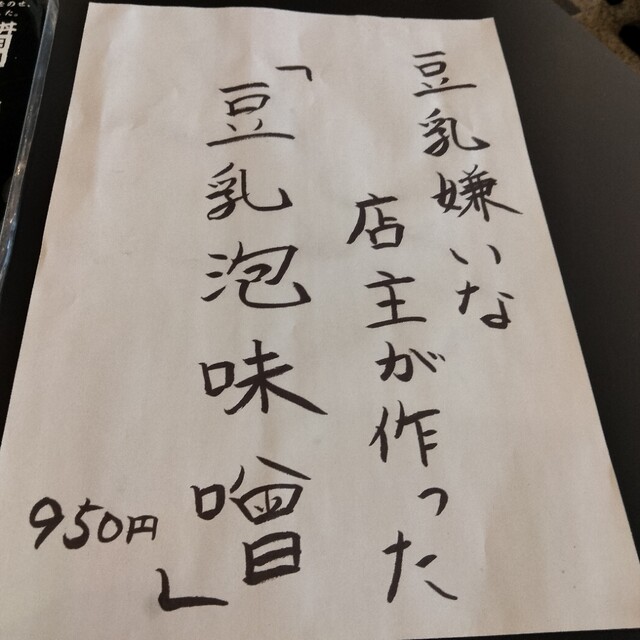 豆乳嫌いな
店主が作った
「豆乳泡味噌」
950円